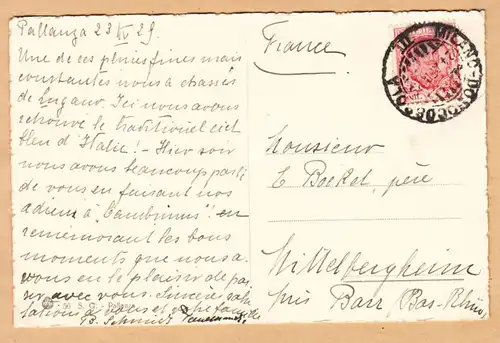 Pallanza 23 IV 29.
Une de ces pluies fines mais
constantes nous a chassés
de Lugano. Ici nous avons
retrouvé le traditionel ciel
bleu d'Italie! - Hier soir
nous avons beaucoup parlé
de vous en faisant nos
adieux à "Cambrinus" en
remémorant les bons
moments que nous a-
vons eu le plaisir de pas-
ser avec vous. Sincères salu-
tations à vous et votre famille
B. Schmidt
S. G. - Pallanza
France
MILANO-DOMODOSSOLA
Monsieur
E Boeckel, père
Mittelbergheim
près Barr (Bas-Rhin)